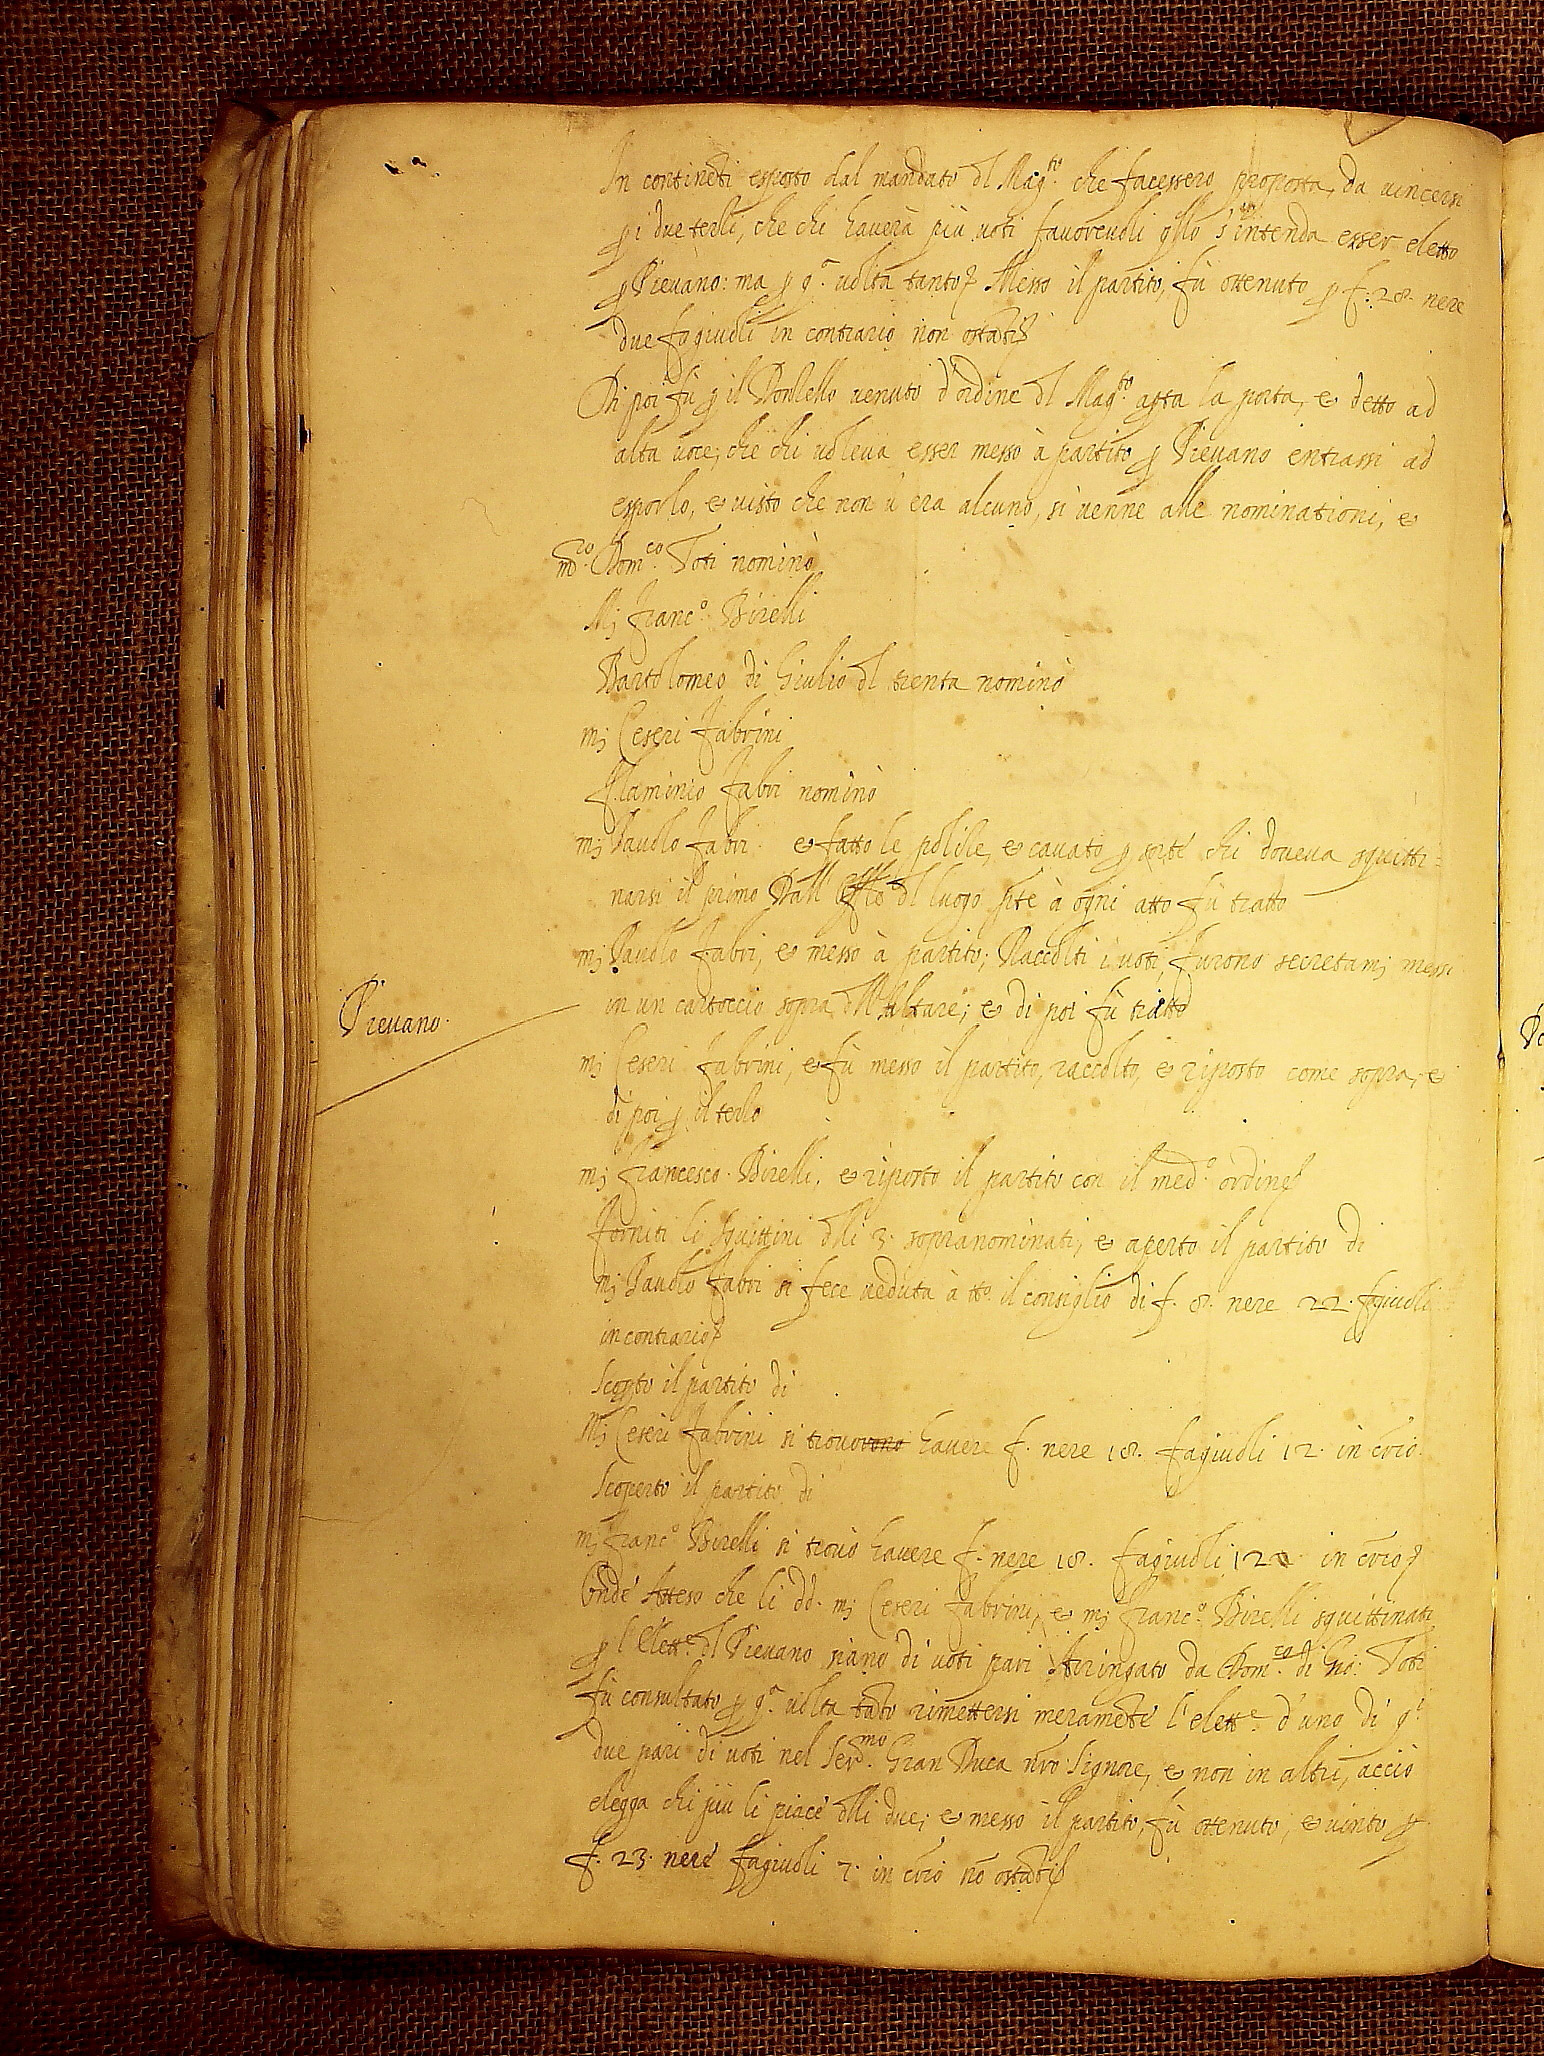 In contineti esposto dal mandato dl Mag.to che facessero proposta, da vincersi
p i due terzi, che chi haverà più voti favorevoli qllo s'intenda esser eletto
p Pievano: ma p q.a volta tanto. Messo il partito, fù ottenuto p f: 28. nere
due fagiuoli in contrario non ostati
Di poi fù p il Donzello venuto d'ordine dl Mag.to apta la porta, e detto ad
alta voce; che chi voleva esser messo à partito p Pievano entrassi ad
esporlo, e visto che non v'era alcuno, si venne alle nominationi, e
Dom.co Toti nominò
Mj franc.o Birelli
Bartolomeo di Giulio dl trenta nominò
mj Ceseri Fabrini
Flaminio Fabri nominò
mj Pavolo Fabri. e fatto le polile, e cavato p sorte chi doveva squitti=
narsi il primo Dall' dl luogo pnte à ogni atto fù tratto
mj Pavolo Fabri, e messo à partito; Raccolti i voti, furono secretamj messi
Pievano.
in un cartoccio sopra dll'Altare; e di poi fù tratto
mj Ceseri Fabrini, e fù messo il partito, raccolto, e riposto come sopra; e
di poi p il terzo
mj francesco Birelli, e riposto il partito con il med.o ordine
Forniti li squittini dlli 3. sopranominati, e aperto il partito di
mj Pavolo Fabri si fece veduta à tto. il consiglio di f. 8. nere 22. fagiuoli
in contrario
Scopto il partito di
Mj Ceseri Fabrini si trovorono havere f. nere 18. fagiuoli 12. in crio.
Scoperto il partito di
mj franc.o Birelli si trovò havere f. nere 18. fagiuoli 12 in crio
Onde Atteso che li dd. mj Ceseri Fabrini, e mj franc.o Birelli squittinati
p l'Elett.e dl Pievano siano di voti pari Arringato da Dom.co di Gio: Toti
fù consultato p q.a volta tato rimettersi meramete l'elett.e d'uno di q.i
due pari di voti nel Ser.mo Gran Duca nro Signore, e non in altri, acciò
elegga chi più li piace dlli due; e messo il partito, fù ottenuto, e vinto p
f. 23. nere fagiuoli 7. in crio no ostati